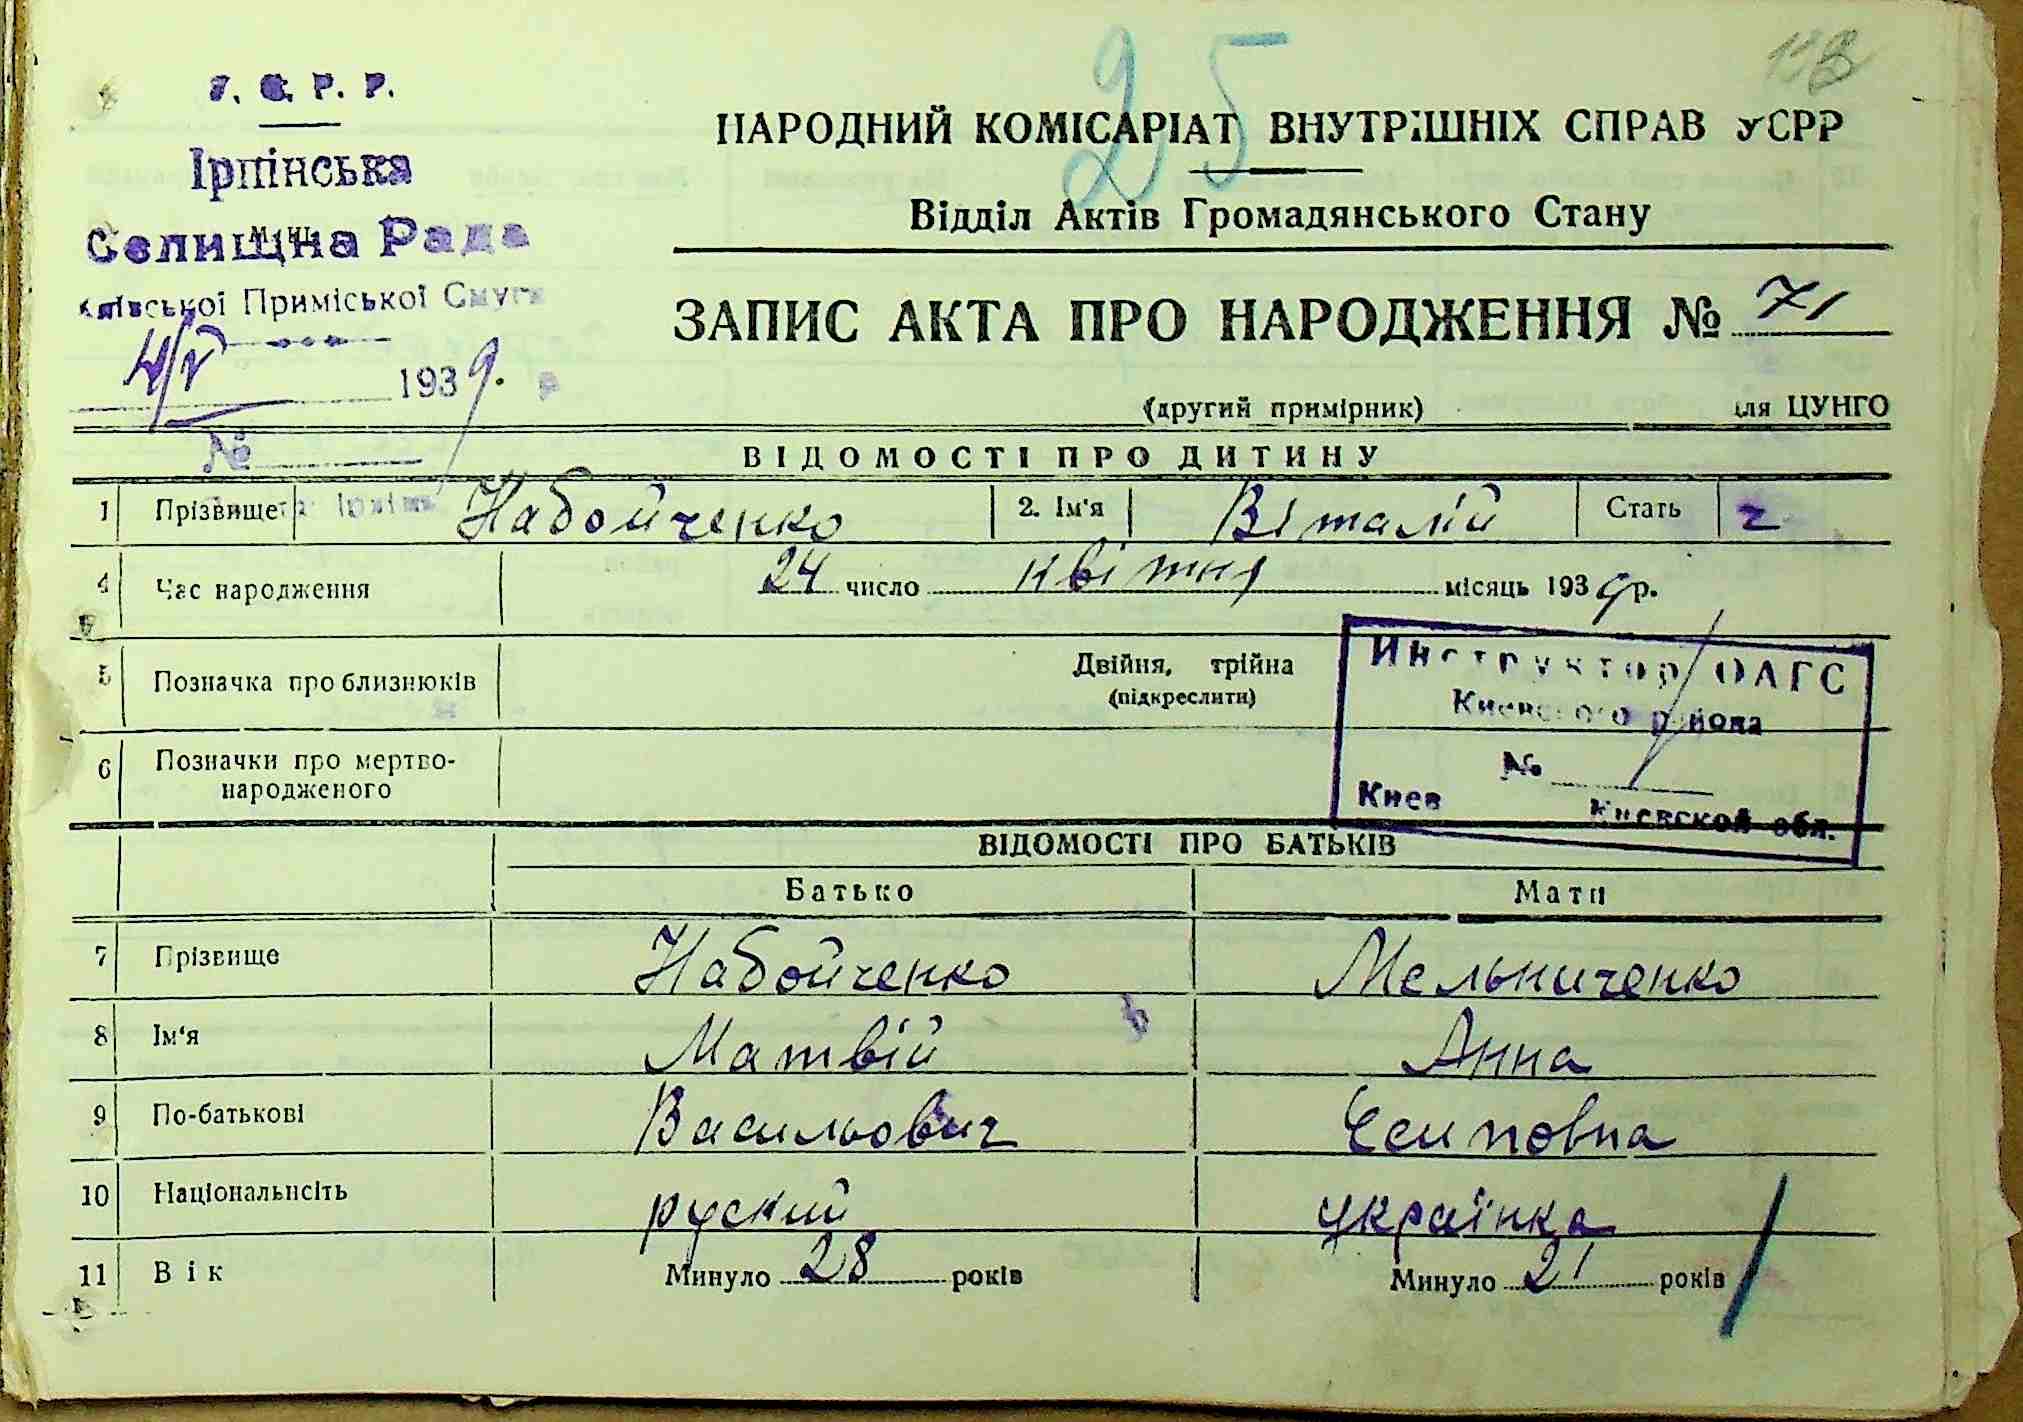 25
У. С. Р. Р.
Ірпінська
Селищна Рада
Київської Приміської Смуги
4/V 1939.
№
НАРОДНИЙ КОМІСАРІАТ ВНУТРІШНІХ СПРАВ УСРР
Відділ Актів Громадянського Стану
ЗАПИС АКТА ПРО НАРОДЖЕННЯ № 71
(другий примірник) для ЦУНГО
ВІДОМОСТІ ПРО ДИТИНУ
1 Прізвище Набойченко 2. Ім'я Віталій Стать ч
4 Час народження 24 число квітня місяць 1939 р.
5 Позначка про близнюків Двійня, трійна
(підкреслити)
Инструктор ОАГС
Киевского района
№
Киев Киевской обл.
6 Позначки про мертво-
народженого
ВІДОМОСТІ ПРО БАТЬКІВ
Батько Мати
7 Прізвище Набойченко Мельниченко
8 Ім'я Матвій Анна
9 По-батькові Васильович Єсиповна
10 Національнсіть руский українка
11 Вік Минуло 28 років Минуло 21 років